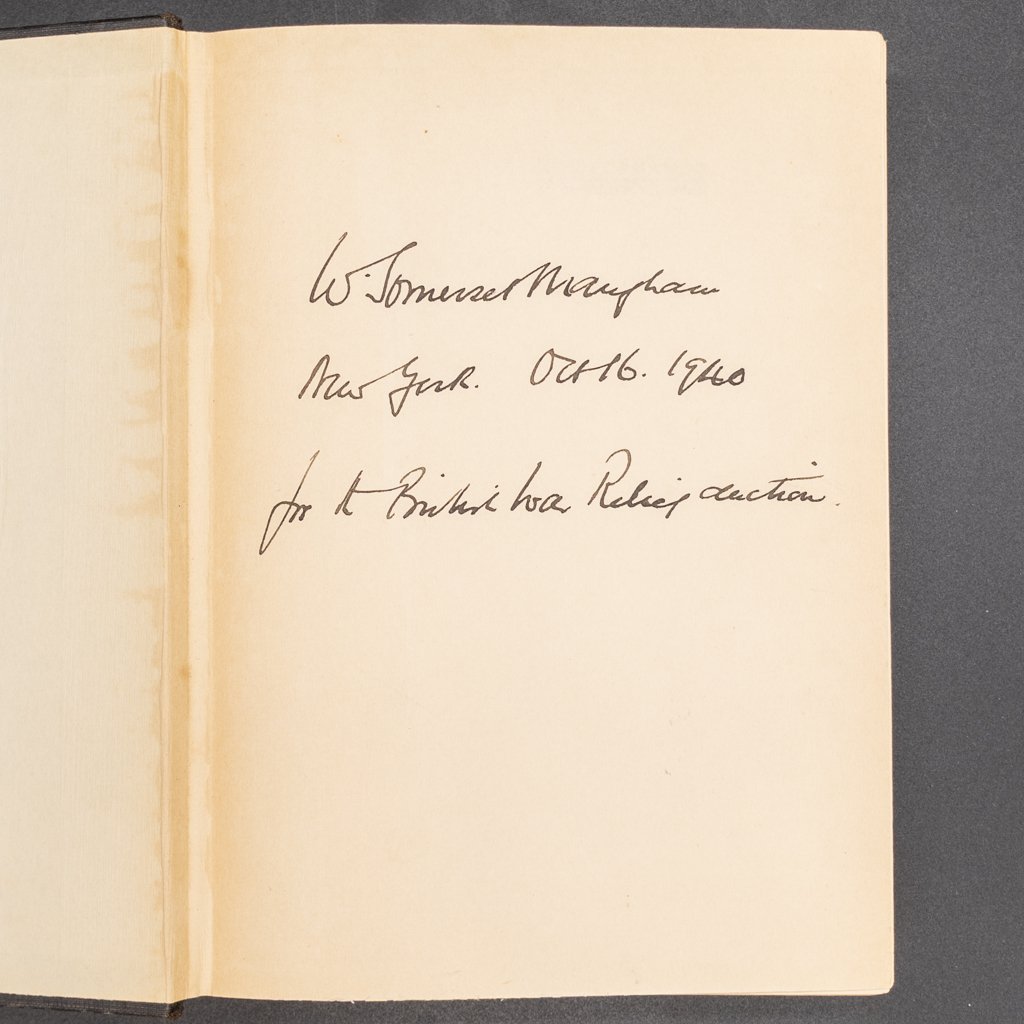 W. Somerset Maugham
New York. Oct 16. 1940
for the British War Relief auction.